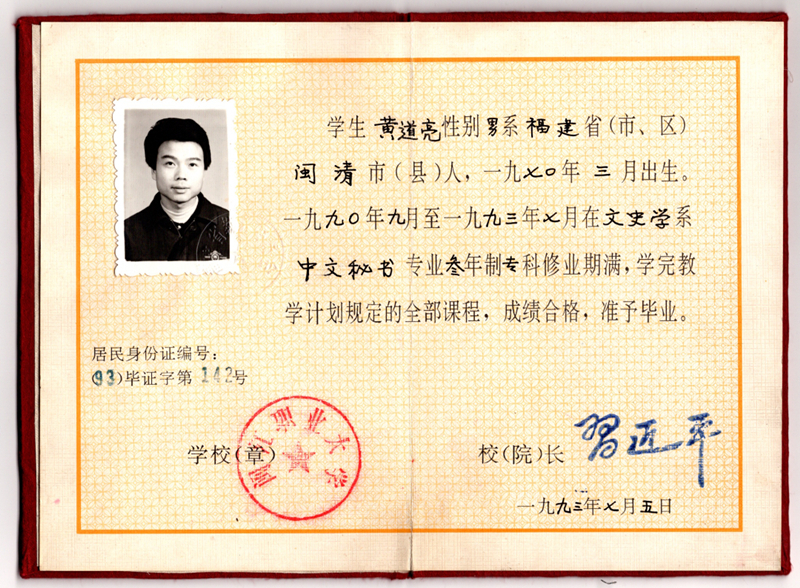 学生 黄道亮 性别 男 系 福建 省（市、区）
闽清 市（县）人，一九七〇年 三 月出生。
一九九〇年九月至一九九三年七月在文史学系
中文秘书 专业叁年制专科修业期满，学完教
学计划规定的全部课程，成绩合格，准予毕业。
居民身份证编号：
（93）毕证字第 142号
学校（章）
闽江职业大学
校（院）长 習近平
一九九三年七月五日